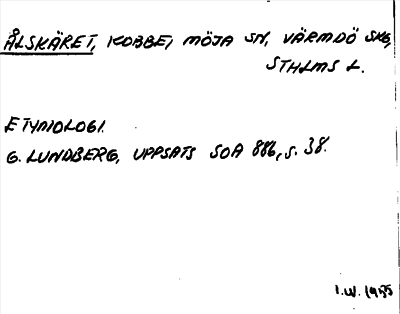 ÅLSKÄRET, KOBBE, MÖJA SN, VÄRMDÖ SKG,
STHLMS L.
ETYMOLOGI.
G. LUNDBERG, UPPSATS SOA 886, s. 38.
I.W. 1955